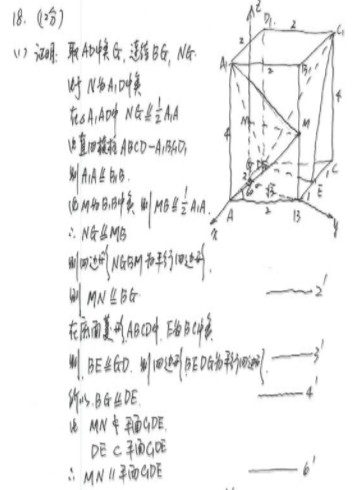 18. (12分)
(1) 证明: 取AD中点G, 连结BG, NG.
由于N为A₁D中点
在△A₁AD中 NG ∥= 1/2 A₁A
由直四棱柱ABCD-A₁B₁C₁D₁
则A₁A ∥= B₁B.
由M为B₁B中点 则MB ∥= 1/2 A₁A.
∴ NG ∥= MB
则四边形NGBM为平行四边形.
则 MN ∥= BG 2'
在底面菱形ABCD中, E为BC中点
则 BE ∥= GD. 则四边形BEDG为平行四边形. 3'
所以 BG ∥= DE. 4'
由 MN ⊄ 平面C₁DE.
DE ⊂ 平面C₁DE
∴ MN // 平面C₁DE 6'
z
D₁
2
C₁
A₁
2
B₁
4
N
M
4
4
G
D
C
E
60°
√3
A
2
B
x
y